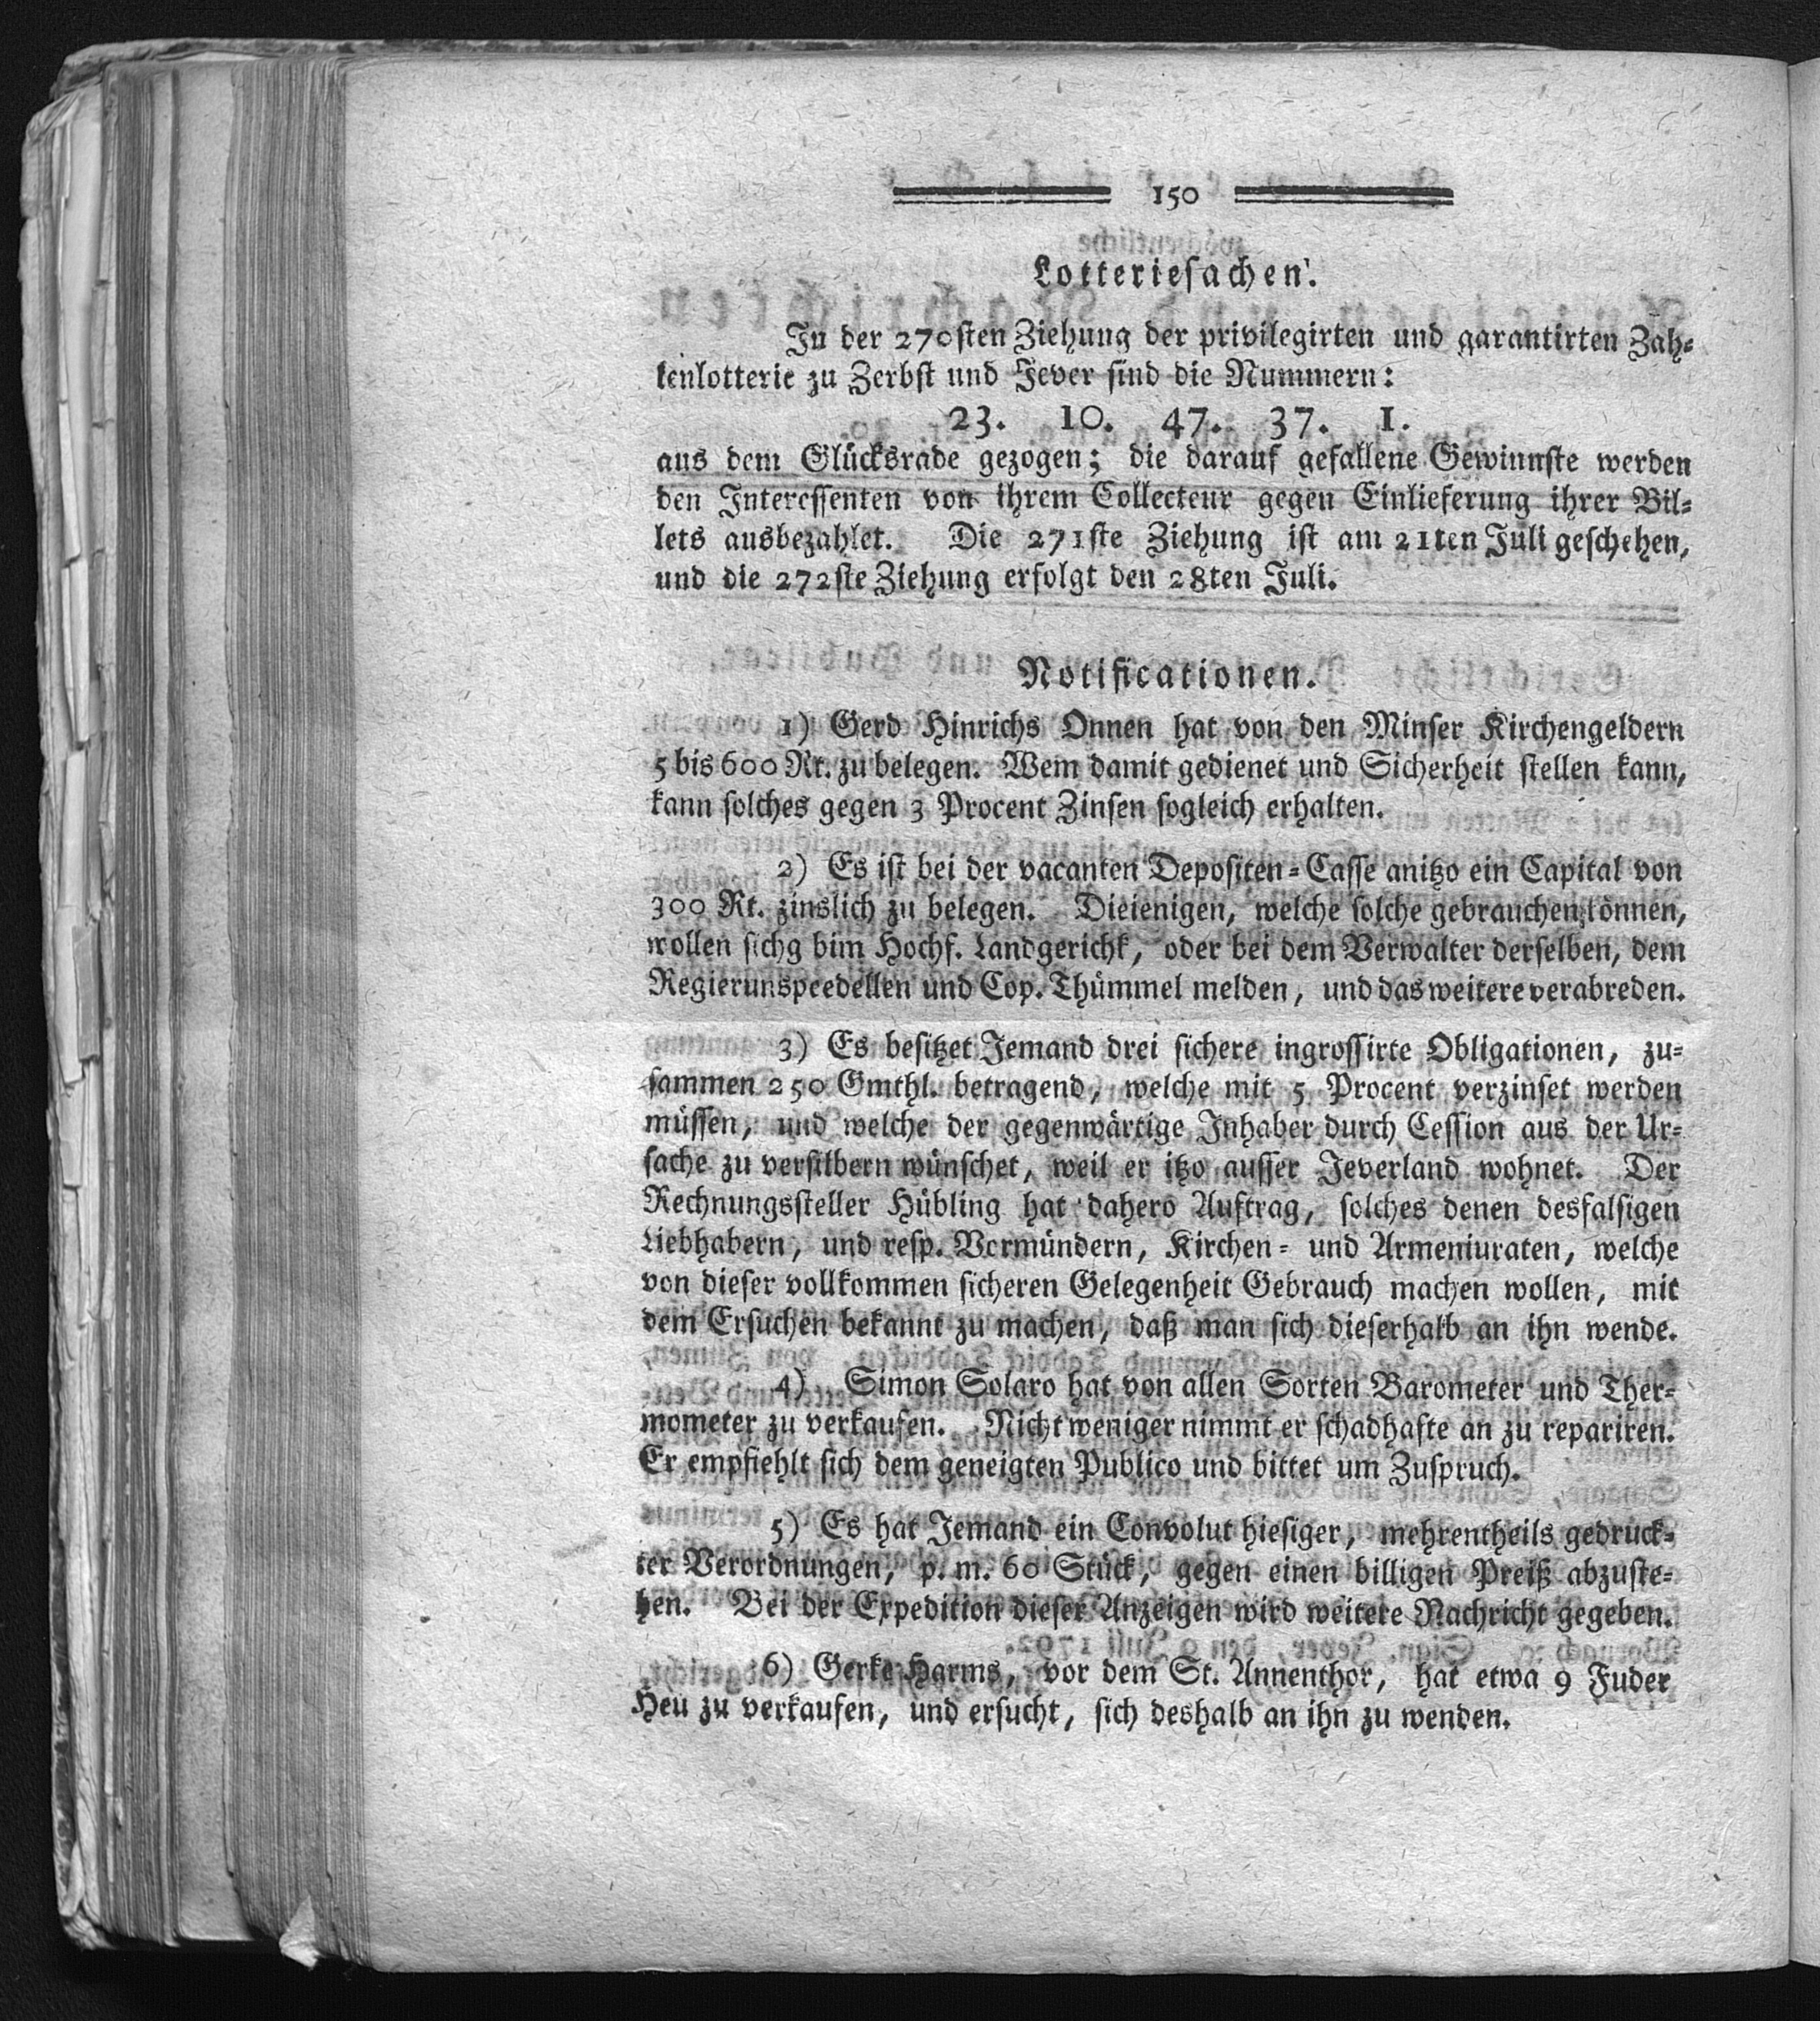 150
Lotteriesachen.
In der 270sten Ziehung der privilegirten und garantirten Zah-
lenlotterie zu Zerbst und Jever sind die Nummern:
23. 10. 47. 37. 1.
aus dem Glücksrade gezogen; die darauf gefallene Gewinnste werden
den Interessenten von ihrem Collecteur gegen Einlieferung ihrer Bil-
lets ausbezahlet. Die 271ste Ziehung ist am 21ten Juli geschehen,
und die 272ste Ziehung erfolgt den 28ten Juli.
Notificationen.
1) Gerd Hinrichs Onnen hat von den Minser Kirchengeldern
5 bis 600 Rt. zu belegen. Wem damit gedienet und Sicherheit stellen kann,
kann solches gegen 3 Procent Zinsen sogleich erhalten.
2) Es ist bei der vacanten Depositen-Casse anitzo ein Capital von
300 Rt. zinslich zu belegen. Dieienigen, welche solche gebrauchen können,
wollen sichg bim Hochf. Landgericht, oder bei dem Verwalter derselben, dem
Regierunspeedellen und Cop. Thümmel melden, und das weitere verabreden.
3) Es besitzet Jemand drei sichere ingrossirte Obligationen, zu-
sammen 250 Gmthl. betragend, welche mit 5 Procent verzinset werden
müssen, und welche der gegenwärtige Inhaber durch Cession aus der Ur-
sache zu versilbern wünschet, weil er itzo ausser Jeverland wohnet. Der
Rechnungssteller Hübling hat dahero Auftrag, solches denen desfalsigen
Liebhabern, und resp. Vormündern, Kirchen- und Armeniuraten, welche
von dieser vollkommen sicheren Gelegenheit Gebrauch machen wollen, mit
dem Ersuchen bekannt zu machen, daß man sich dieserhalb an ihn wende.
4) Simon Solaro hat von allen Sorten Barometer und Ther-
mometer zu verkaufen. Nicht weniger nimmt er schadhafte an zu repariren.
Er empfiehlt sich dem geneigten Publico und bittet um Zuspruch.
5) Es hat Jemand ein Convolut hiesiger, mehrentheils gedruck-
ter Verordnungen, p. m. 60 Stück, gegen einen billigen Preiß abzuste-
hen. Bei der Expedition dieser Anzeigen wird weitere Nachricht gegeben.
6) Gerke Harms, vor dem St. Annenthor, hat etwa 9 Fuder
Heu zu verkaufen, und ersucht, sich deshalb an ihn zu wenden.